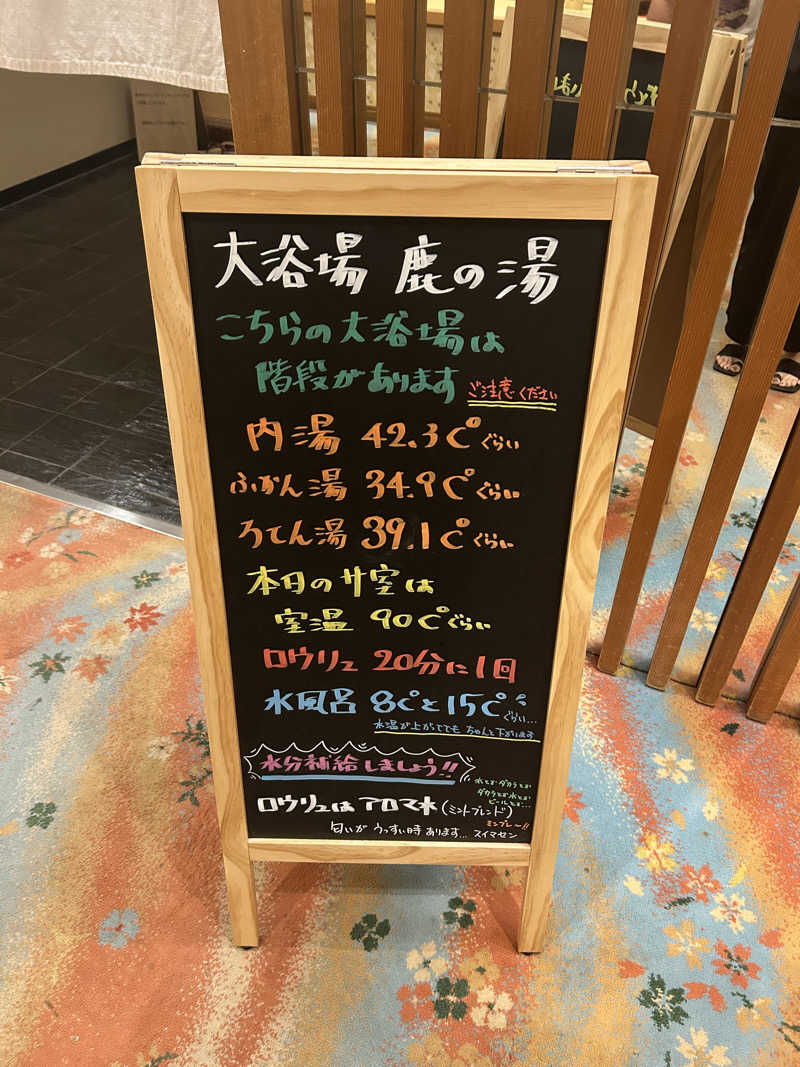 大浴場 鹿の湯
こちらの大浴場は
階段があります ご注意ください
内湯 42.3C°ぐらい
ふかん湯 34.9C°ぐらい
ろてん湯 39.1C°ぐらい
本日のサ室は
室温 90C°ぐらい
ロウリュ 20分に1回
水風呂 8C°と15C°ぐらい…
水温が上がってても ちゃんと下がります
水分補給しましょう!!
水とかダカラとか
ダカラとか水とか
ビールとか…
ロウリュは アロマ水(ミントブレンド)
ミンブレー!!
匂いが うっすい時あります… スイマセン